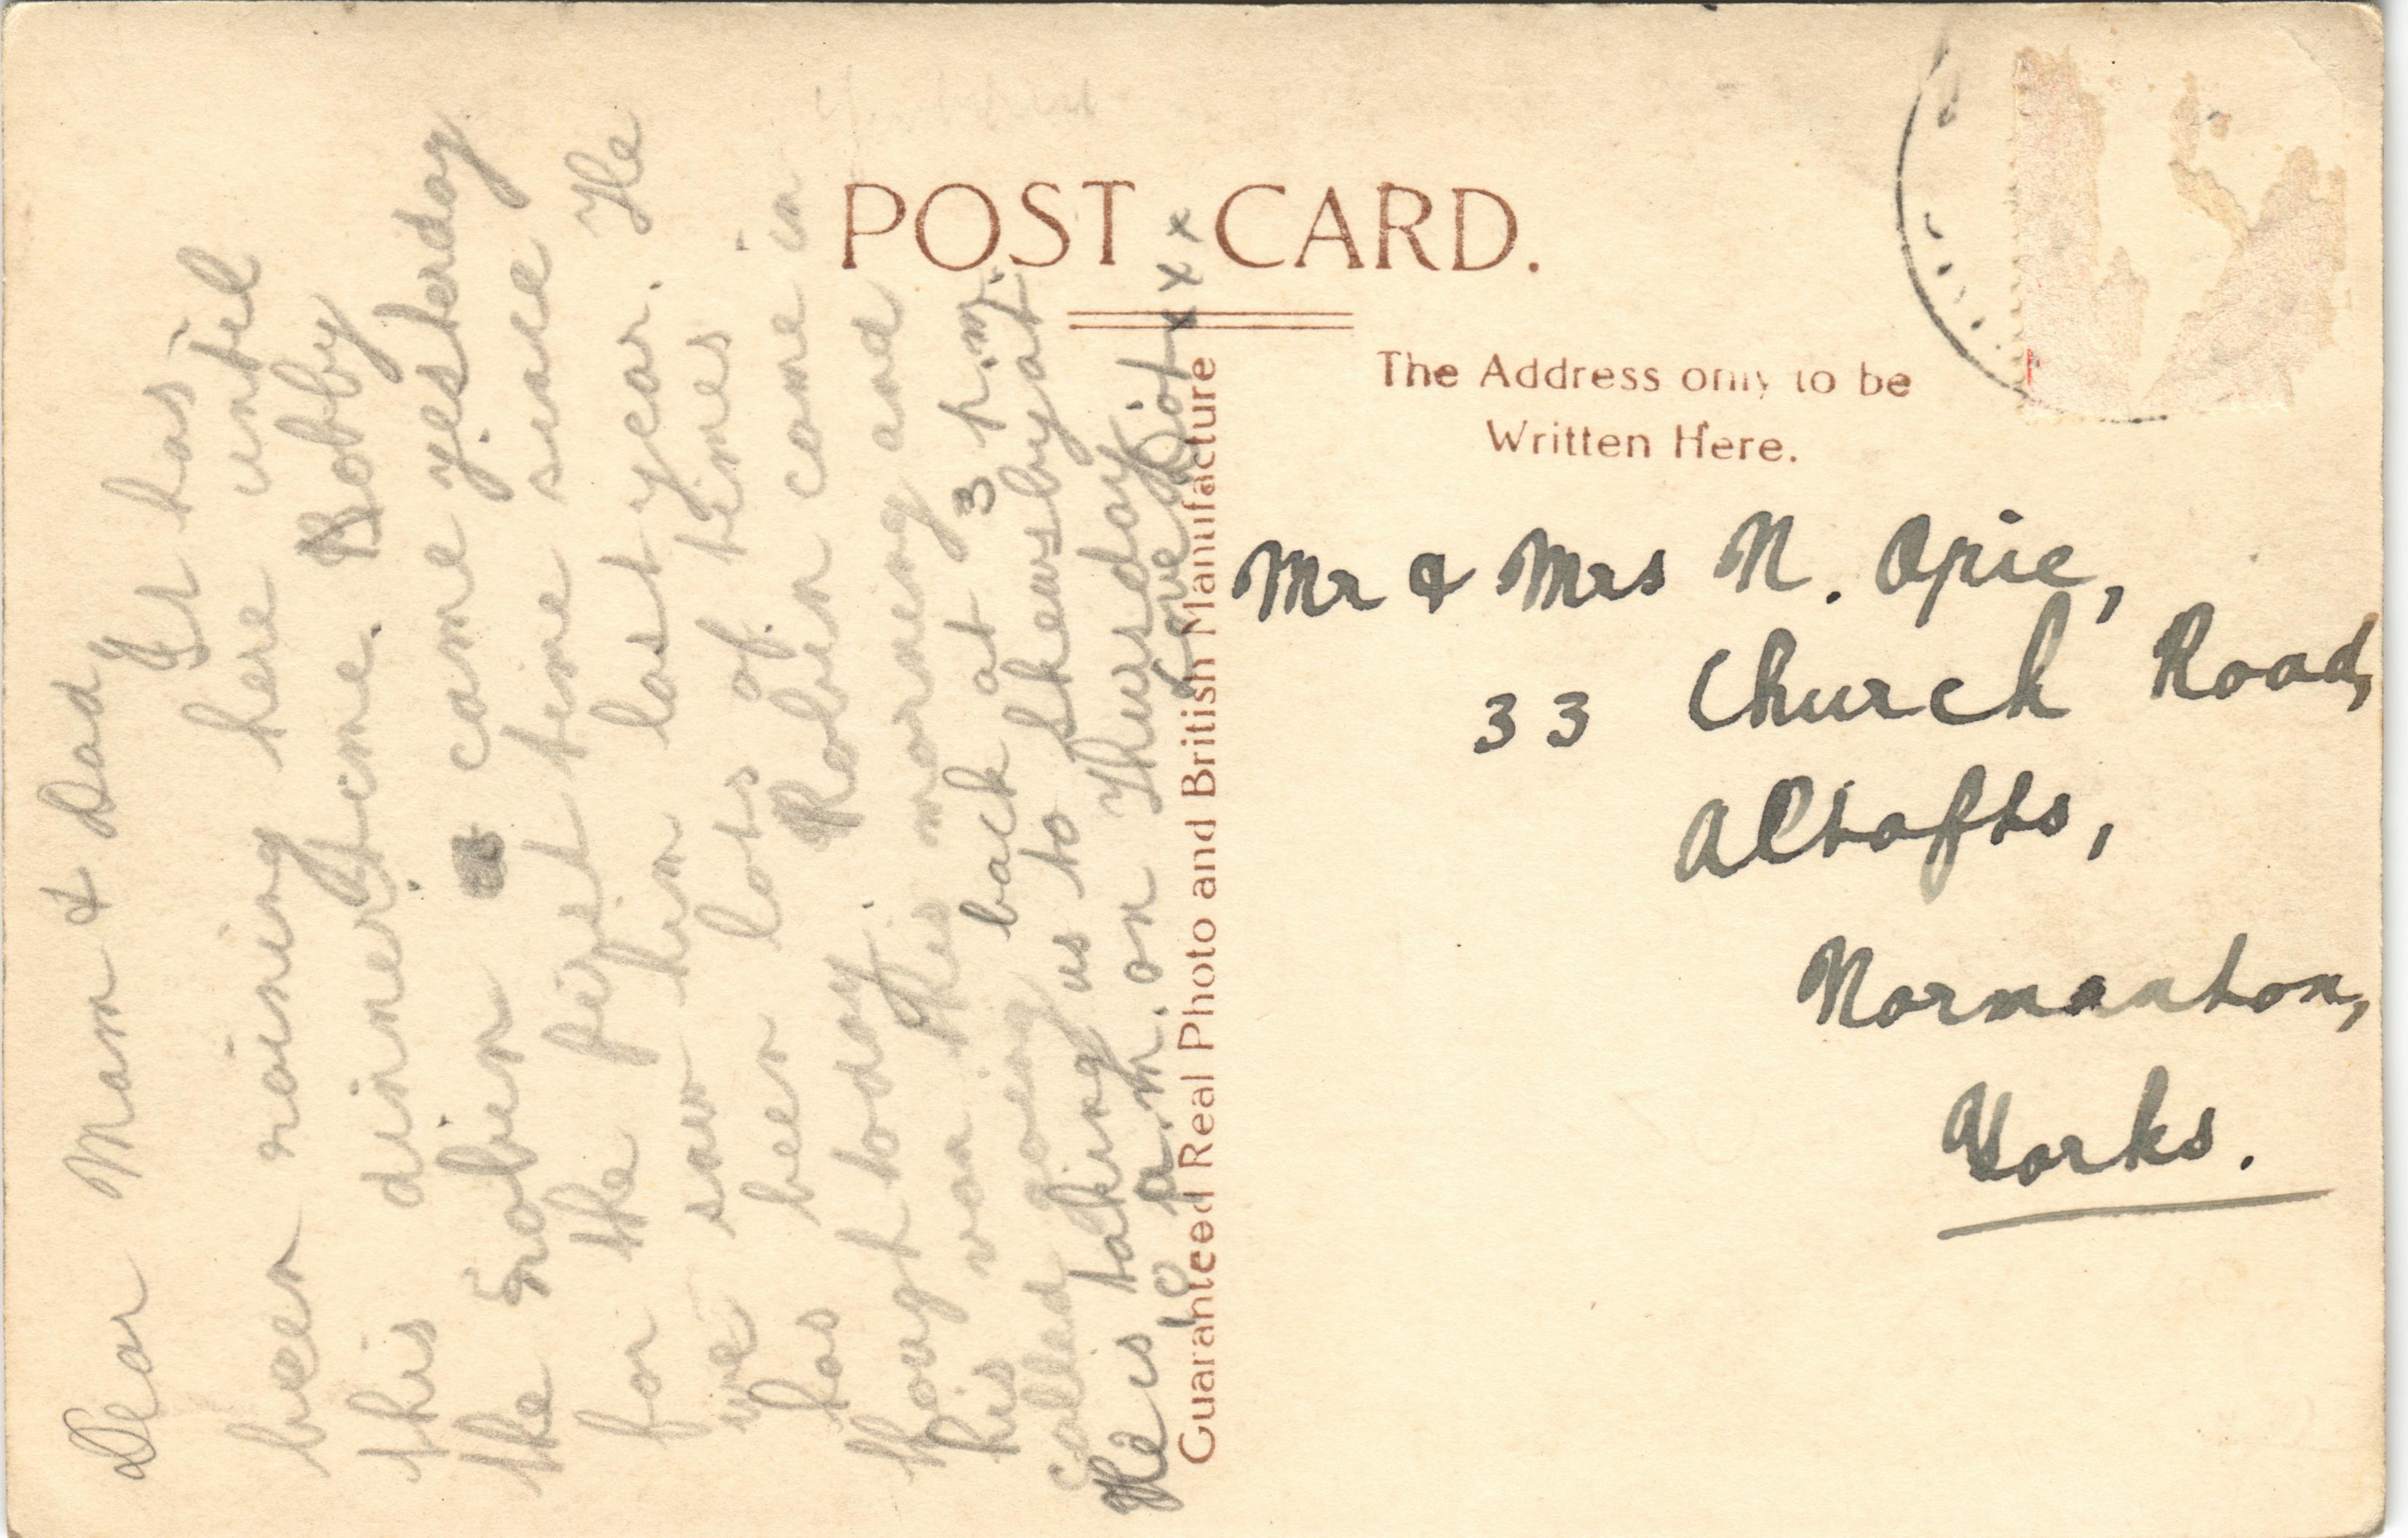 POST CARD.
The Address only to be
Written Here.
Guaranteed Real Photo and British Manufacture
Dear Mam & Dad
It has
been raining here until
this dinner time. Bobby
the robin came yesterday
for the first time since
we saw him last year. He
has been lots of times
though today. Robin come in
his van this morning and
called going back at 3 p.m.
He is taking us to Skewsby at
10 a.m. on Thursday
Love Dot x x x x
Mr & Mrs N. Opie,
33 Church Road,
Altofts,
Normanton,
Yorks.